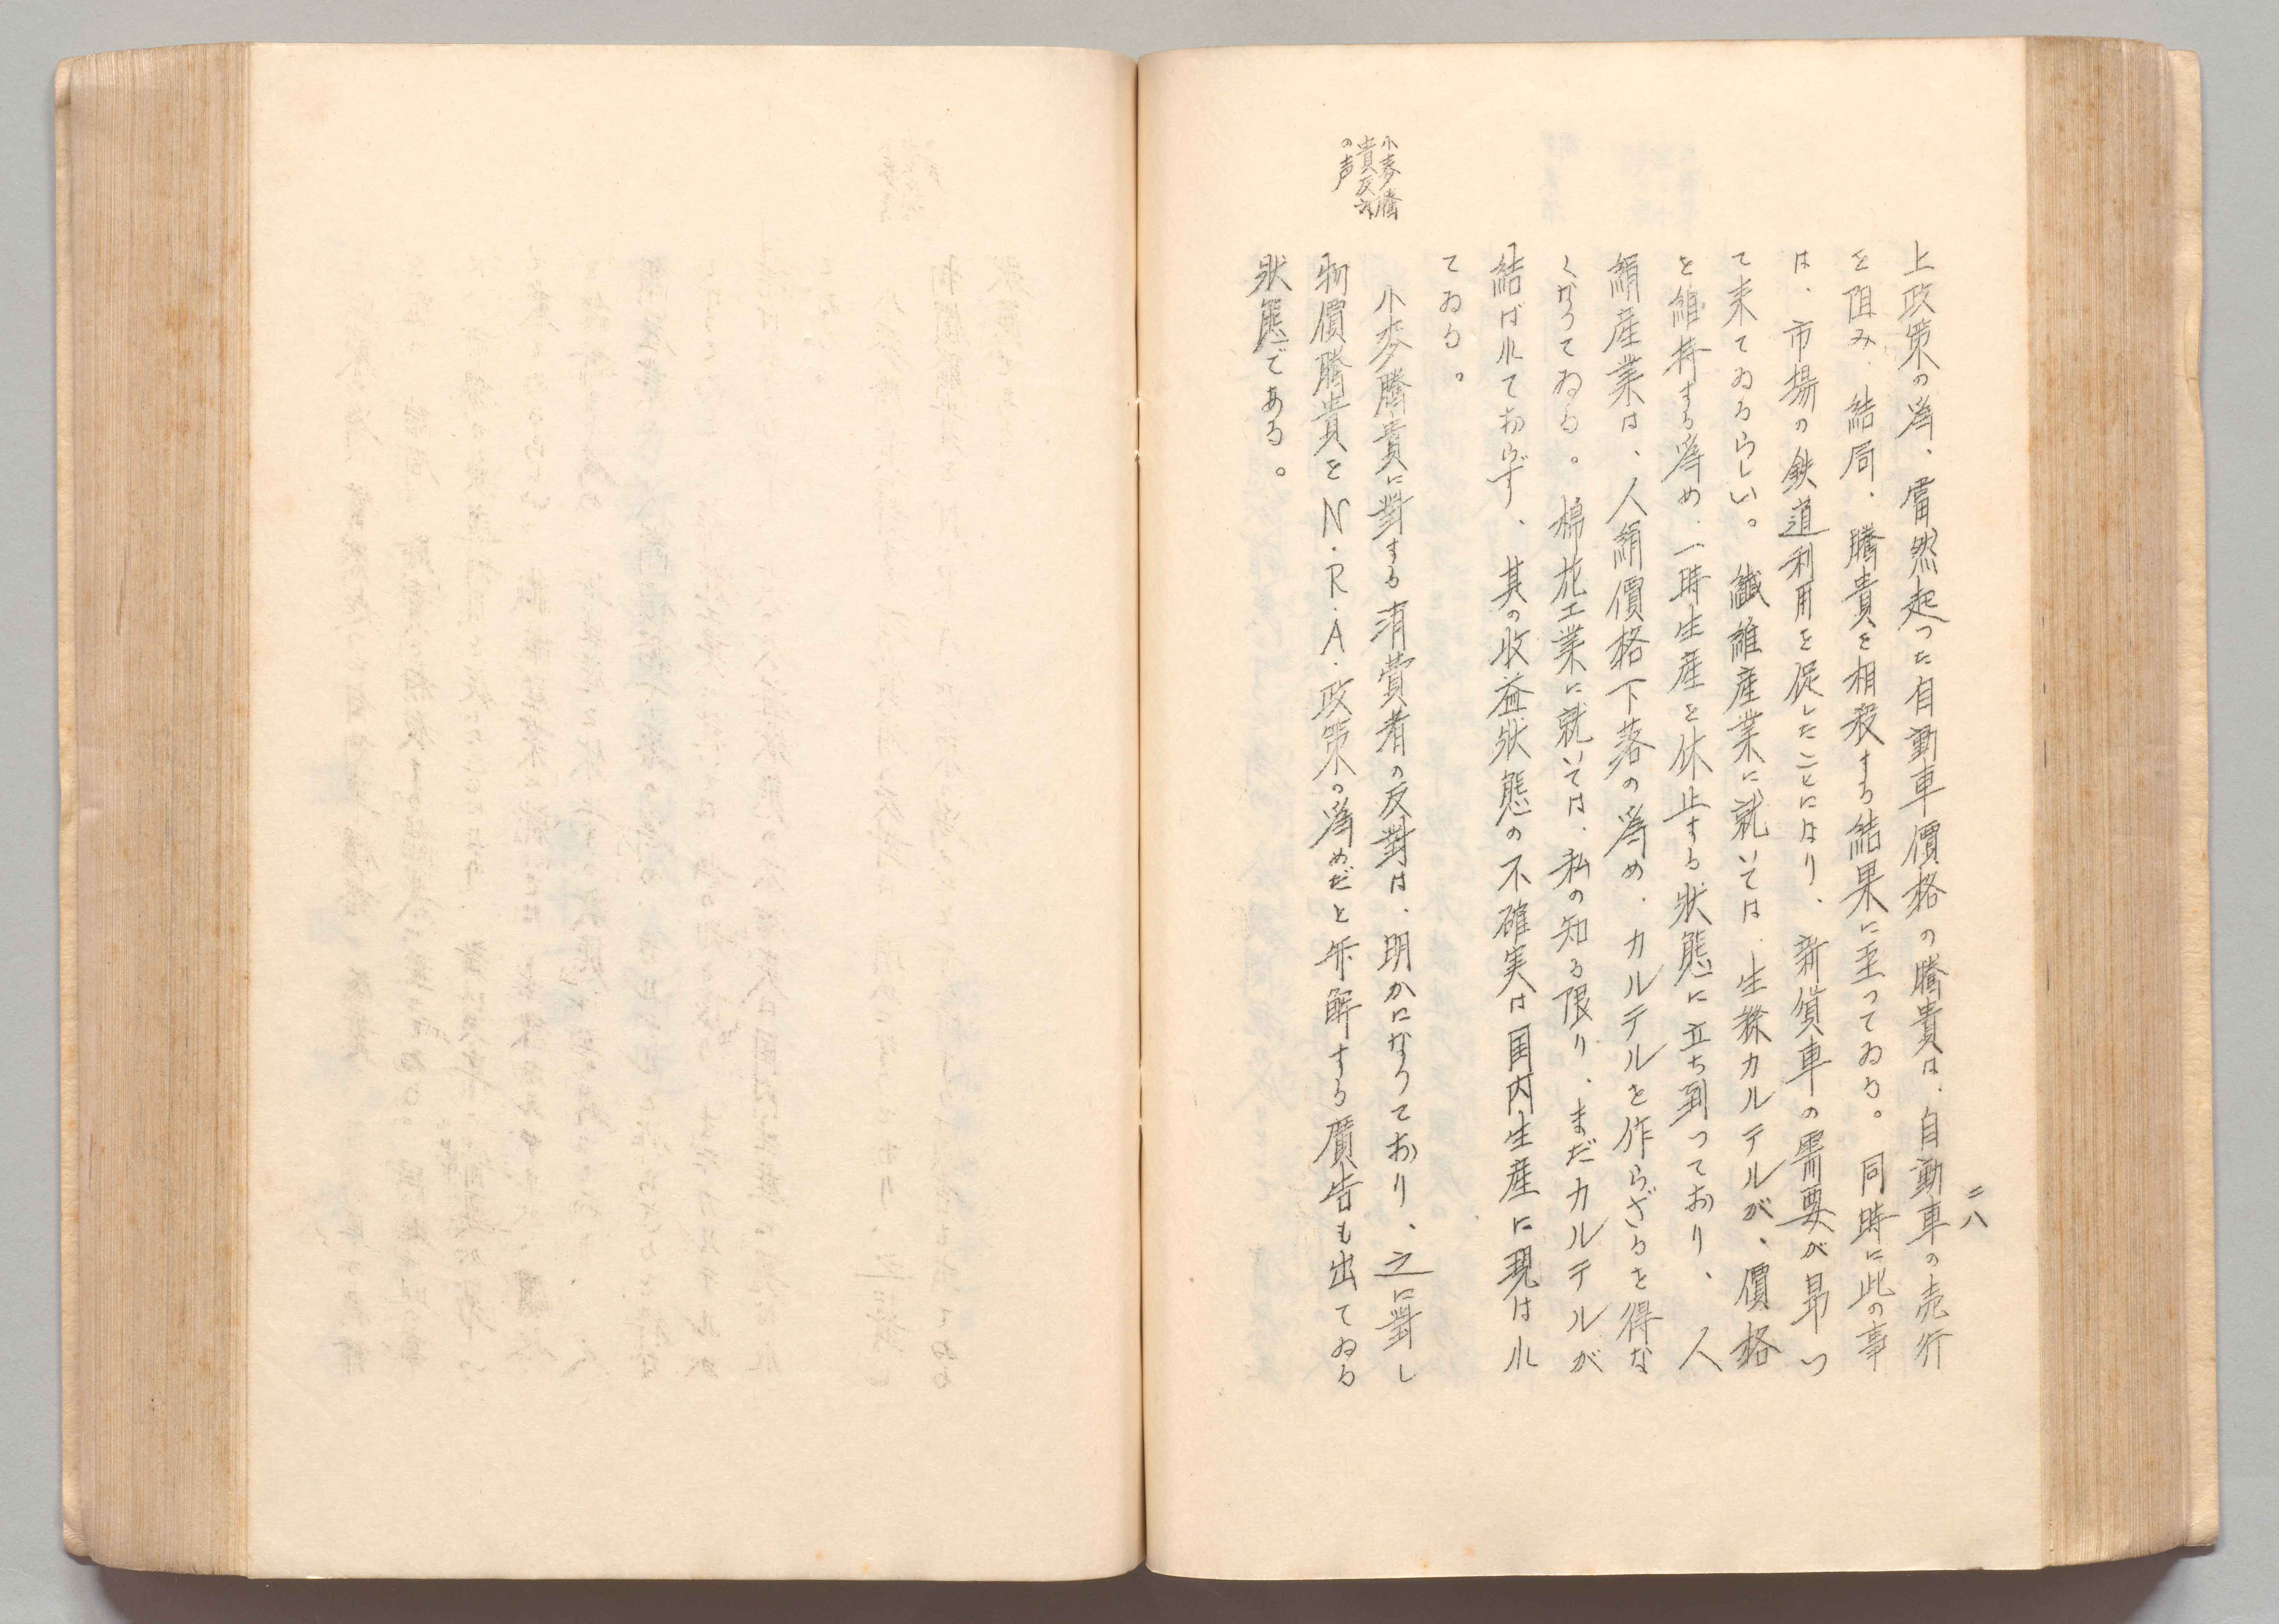 二八
上政策の為、當然起つた自動車價格の騰貴は、自動車の売行
を阻み、結局、騰貴を相殺する結果に至つてゐる。同時に此の事
は、市場の鉄道利用を促したことになり、新貨車の需要が昻つ
て来てゐるらしい。纎維産業に就いては、生糸カルテルが、價格
を維持する為め、一時生産を休止する狀態に立ち到つており、人
絹産業は、人絹價格下落の為め、カルテルを作らざるを得な
くなつてゐる。棉花工業に就いては、私の知る限り、まだカルテルが
結ばれておらず、其の收益狀態の不確実は国内生産に現はれ
てゐる。
小麥騰
貴反対
の声
小麥騰貴に對する消費者の反對は、明かになつており、之に對し
物價騰貴をN.R.A.政策の為めだと弁解する廣告も出てゐる
狀態である。